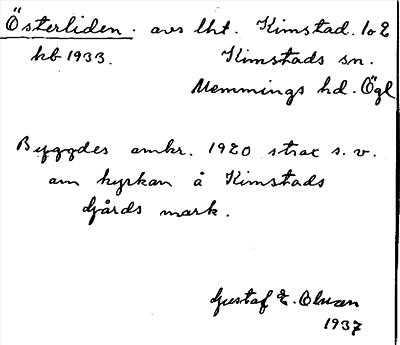 Österliden. avs lht. Kimstad. 1o2
kb 1933. Kimstads sn.
Memmings hd. Ögl
Byggdes omkr. 1920 strax s.v.
om kyrkan å Kimstads
gårds mark.
Gustaf E. Olsson
1937